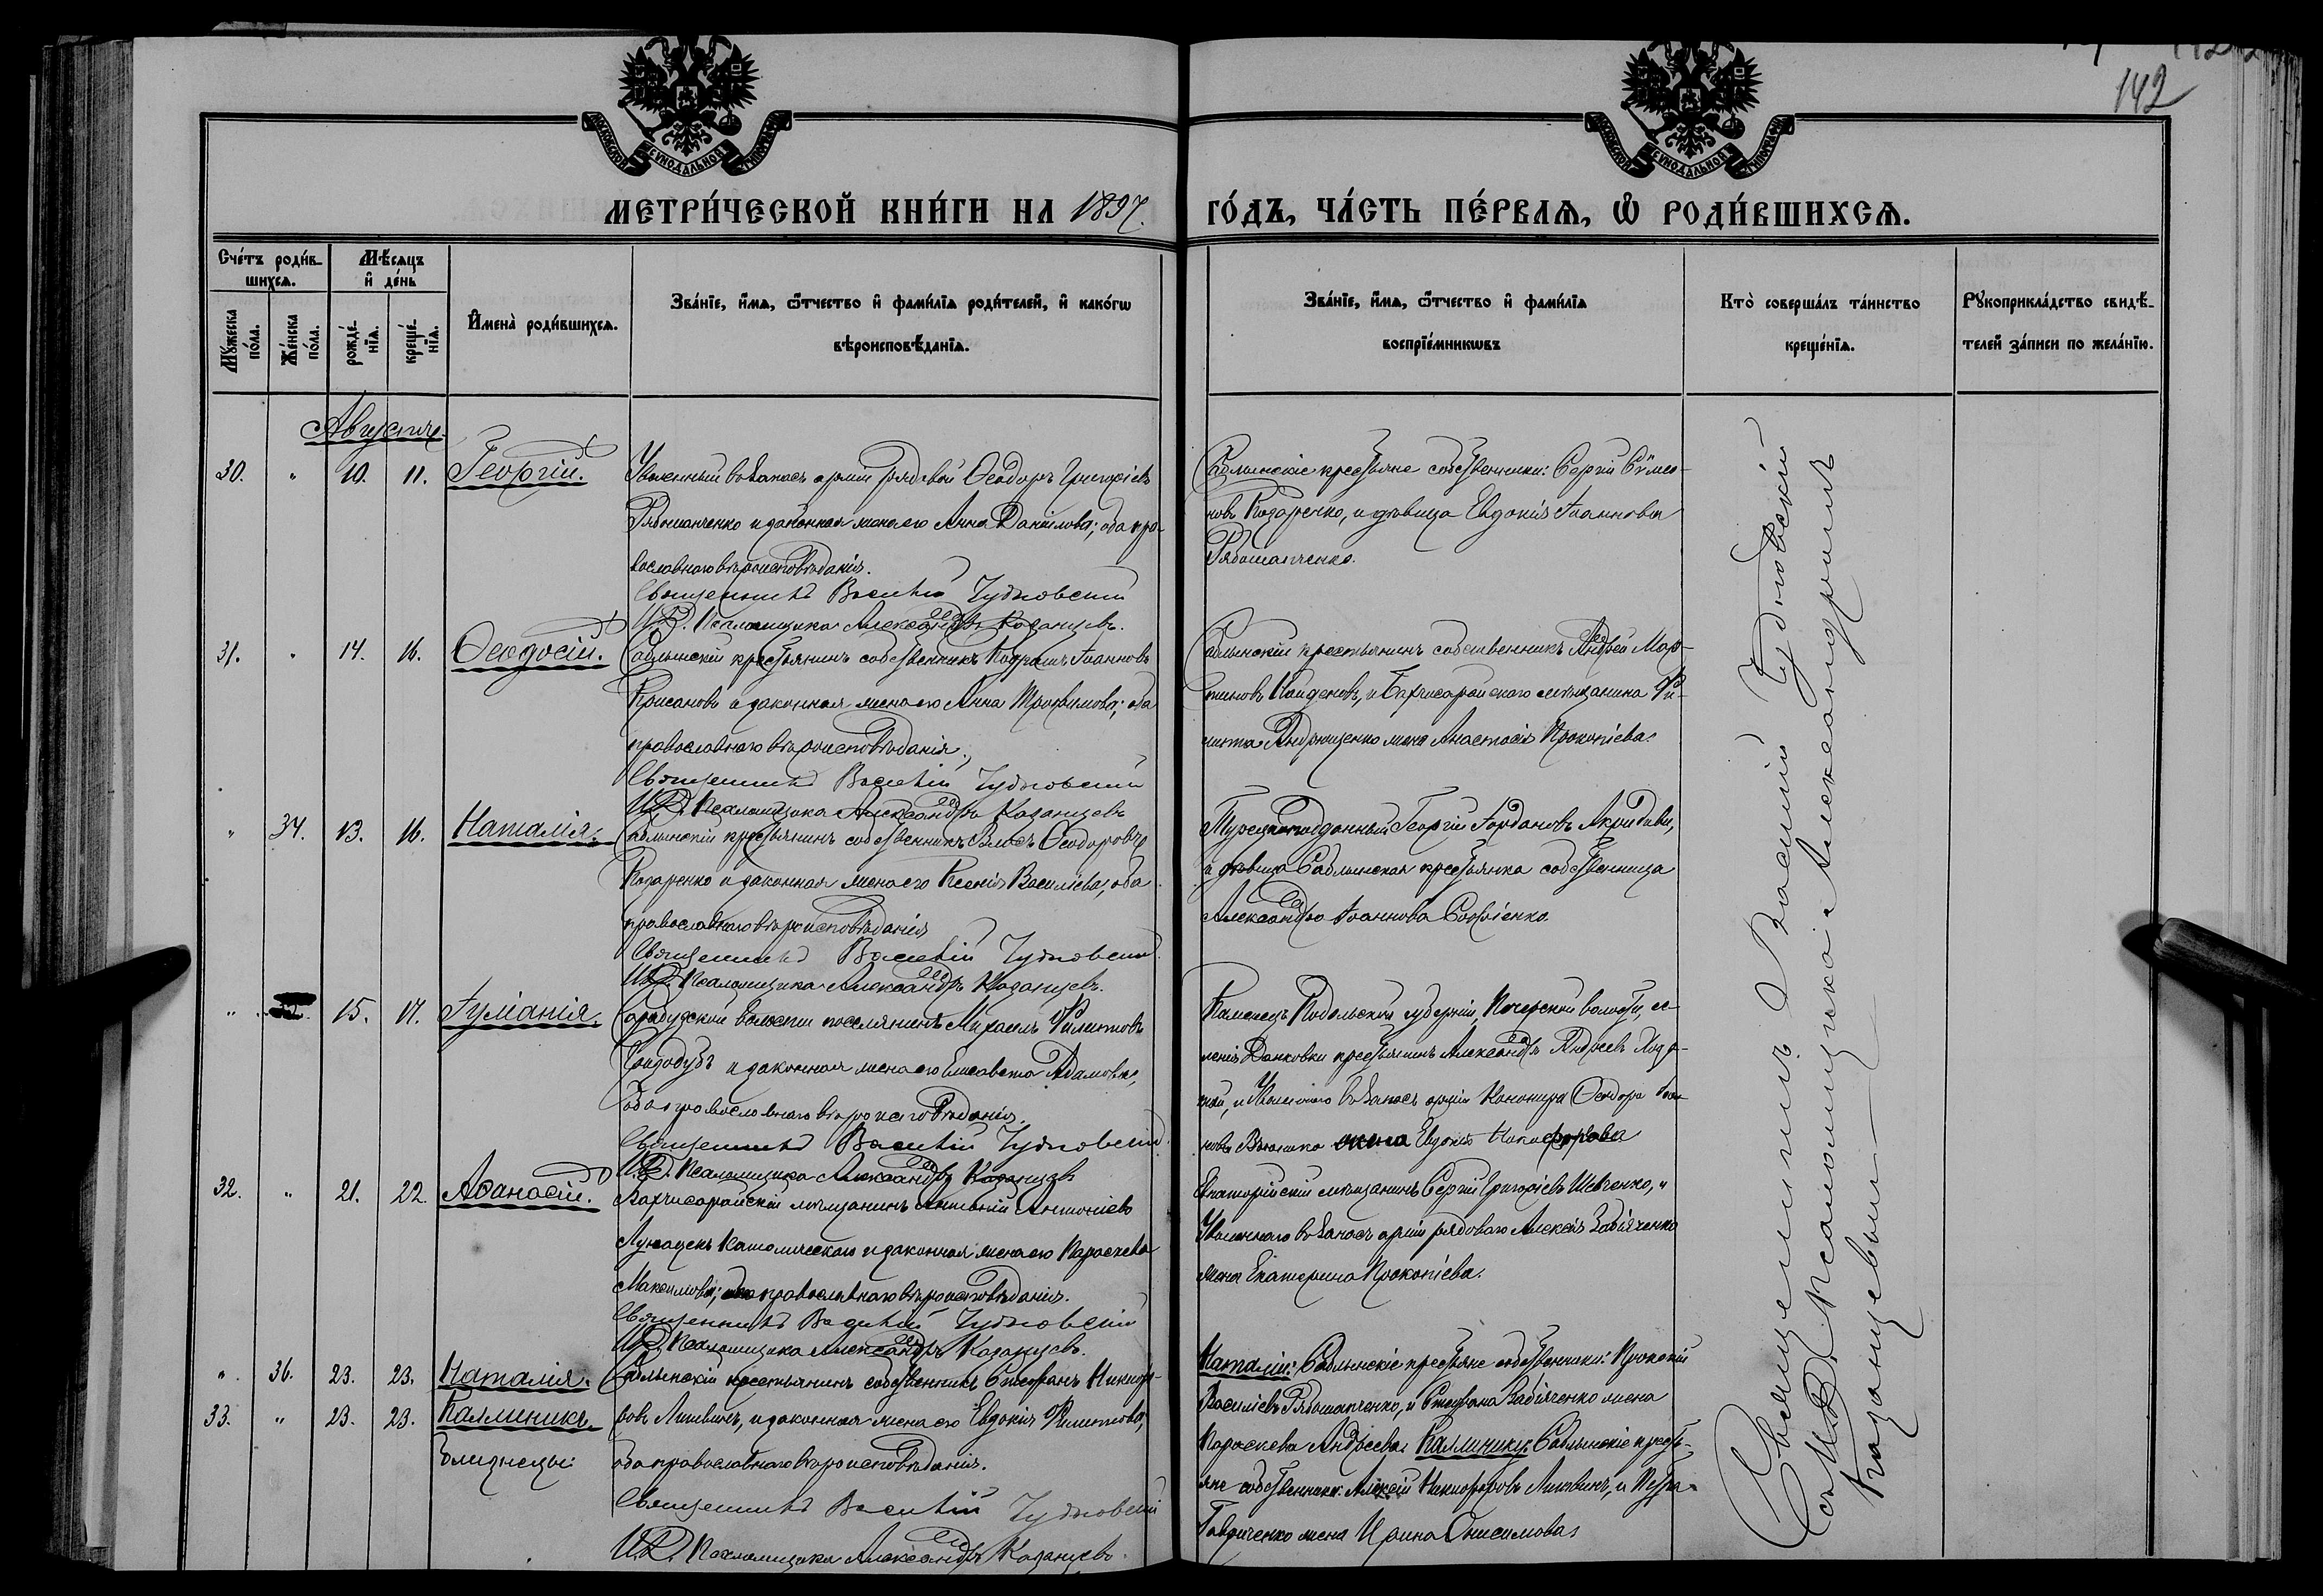 142
МОСКОВСКОЙ СѴНОДАЛЬНОЙ ТИПОГРАФІИ
МОСКОВСКОЙ СѴНОДАЛЬНОЙ ТИПОГРАФІИ
МЕТРИ́ЧЕСКОЙ КНИ́ГИ НА 1897.
ГО́ДЪ, ЧА́СТЬ ПЕ́РВАЯ, Ѡ҆ РОДИ́ВШИХСЯ.
Сче́тъ роди́в-
шихся.
Му́жеска по́ла.
Же́нска по́ла.
Мѣ́сяцъ и҆ де́нь
рожде́-нїя.
креще́-нїя.
И҆мена̀ роди́вшихся.
Зва́нїе, и҆́мя, ѻ҆́тчество и҆ фами́лїя роди́телей, и҆ како́гѡ
вѣроисповѣ́данїя.
Зва́нїе, и҆́мя, ѻ҆́тчество и҆ фами́лїя
воспрїе́мникѡвъ
Кто̀ соверша́лъ та́инство
креще́нїя.
Рꙋкоприкла́дство свидѣ́-
телей за́писи по жела́нїю.
Августъ
30. " 10. 11. Георгій.
Уволенный въ запасъ арміи рядовой Ѳеодоръ Григоріевъ
Рябошапченко и законная жена его Анна Даніилова; оба пра-
вославнаго вѣроисповѣданія.
Священникъ Василій Чудновскій
И. Д. Псаломщика Александръ Казанцевъ.
Саблынскіе крестьяне собственники: Сергій Сѵмео-
новъ Козаренко, и дѣвица Евдокія Іоаннова
Рябошапченко.
31. " 14. 16. Ѳеодосій.
Саблынскій крестьянинъ собственникъ Кодратъ Іоанновъ
Крисановъ и законная жена его Анна Трофимова; оба
православнаго вѣроисповѣданія.
Священникъ Василій Чудновскій
И. Д. Псаломщика Александръ Казанцевъ
Саблынскій крестьянинъ собственникъ Андрей Мар-
тиновъ Найденовъ, и Бахчисарайскаго мѣщанина Фи-
липпа Андрющенко жена Анастасія Прокопіева.
" 34. 13. 16. Наталія.
Саблынскій крестьянинъ собственникъ Власъ Ѳеодоровъ
Козаренко и законная жена его Ксенія Василіева, оба
православнаго вѣроисповѣданія
Священникъ Василій Чудновскій.
И. Д. Псаломщика Александръ Казанцевъ.
Турецкоподданный Георгій Іордановъ Акридиви,
и дѣвица Саблынская крестьянка собственница
Александра Іоаннова Софіенко.
" 15. 17. Іуліанія.
Сарабузской волости поселянинъ Михаилъ Филиповъ
и законная жена его Елисавета Адамовна,
оба православнаго вѣроисповѣданія.
Священникъ Василій Чудновскій
И. Д. Псаломщика Александръ Казанцевъ
Каменецъ Подольской губерніи, Печерской волости, се-
ленія Данковки крестьянинъ Александръ Андреевъ
и Уволеннаго въ запасъ арміи Канонира Ѳеодора Іоан-
нова жена Евдокія Никифорова
32. " 21. 22. Аѳанасій.
Бахчисарайскій мѣщанинъ Антоній Антоніевъ
Католическаго и законная жена его Параскева
Максимова; православнаго вѣроисповѣданія.
Священникъ Василій Чудновскій
И. Д. Псаломщика Александръ Казанцевъ.
Евпаторійскій мѣщанинъ Сергій Григоріевъ Шевченко, и
Уволеннаго въ запасъ арміи рядоваго Алексія Забіяченко
жена Екатерина Прокопіева.
" 36. 23. 23. Наталія.
33. " 23. 23. Каллиникъ
близнецы:
Саблынскій крестьянинъ собственникъ Стефанъ Никифо-
ровъ Литвинъ, и законная жена его Евдокія Филиппова,
оба православнаго вѣроисповѣданія.
Священникъ Василій Чудновскій
И. Д. Псаломщика Александръ Казанцевъ.
Наталіи: Саблынскіе крестьяне собственники: Прокопій
Василіевъ Рябошапченко, и Стефана Забіяченко жена
Параскева Андреева. Каллинику: Саблынскіе кресть-
яне собственники: Алексій Никифоровъ Литвинъ, и Петра
Гавриченко жена Ирина Онисимова.
Священникъ Василій Чудновскій
съ И. Д. Псаломщика Александромъ
Казанцевымъ